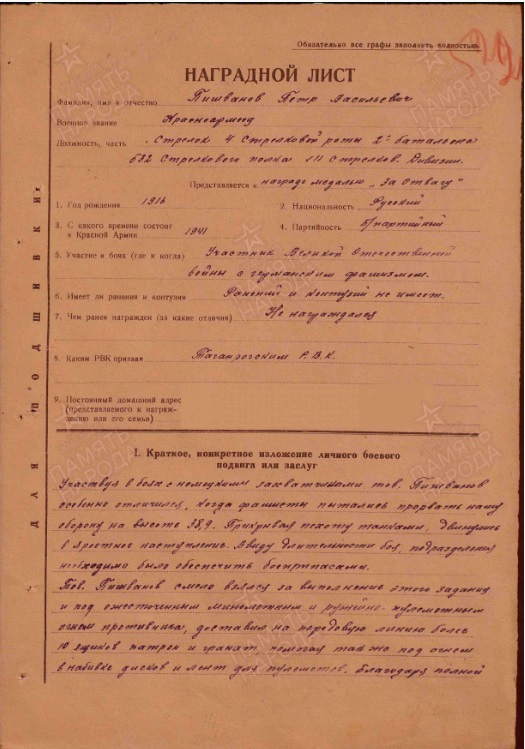 Обязательно все графы заполнять полностью
НАГРАДНОЙ ЛИСТ
Фамилия, имя и отчество Пишванов Петр Васильевич
Военное звание Красноармеец
Должность, часть Стрелок 4 стрелковой роты 2го баталиона
632 Стрелкового полка 111 Стрелков. Дивизии.
Представляется к награде медалью „За Отвагу"
1. Год рождения 1916 2. Национальность Русский
3. С какого времени состоит в Красной Армии 1941 4. Партийность б/партийный
5. Участие в боях (где и когда) Участник Великой Отечественной
войны с германским фашизмом.
6. Имеет ли ранения и контузии Ранений и контузий не имеет.
7. Чем ранее награжден (за какие отличия) Не награждался
8. Каким РВК призван Таганрогским Р.В.К.
9. Постоянный домашний адрес
(представляемого к награж-
дению или его семьи)
I. Краткое, конкретное изложение личного боевого
подвига или заслуг
Участвуя в боях с немецкими захватчиками тов. Пишванов
особенно отличился, когда фашисты пытались прорвать нашу
оборону на высоте 38,9. Прикрывая пехоту танками, двинулись
в яростное наступление. Ввиду длительности боя, подразделения
необходимо было обеспечить боеприпасами.
Тов. Пишванов смело взялся за выполнение этого задания
и под ожесточенным минометным и ружейно-пулеметным
огнем противника, доставил на передовую линию более
10 ящиков патрон и гранат, помогая также под огнем
в набивке дисков и лент для пулеметов. Благодаря полной
ДЛЯ ПОДШИВКИ
ПАМЯТЬ НАРОДА